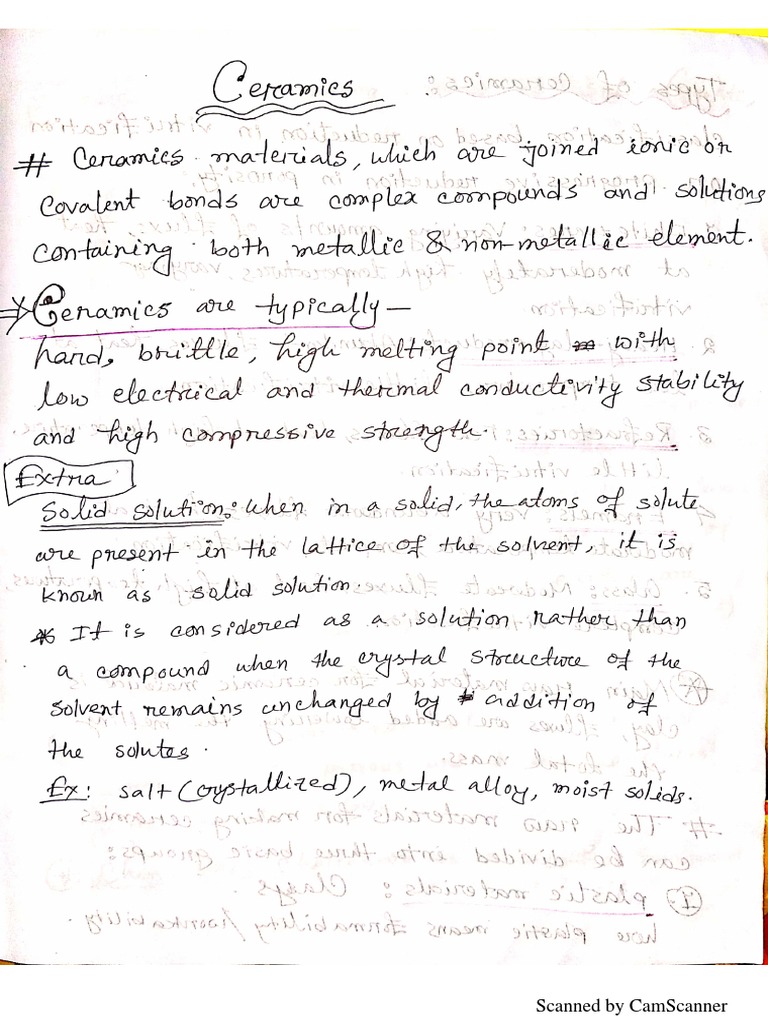 Ceramics
# Ceramics materials, which are joined ionic or
covalent bonds are complex compounds and solutions
containing both metallic & non-metallic element.
⇒ Ceramics are typically —
hard, brittle, high melting point with
low electrical and thermal conductivity stability
and high compressive strength.
Extra
Solid solution: when in a solid, the atoms of solute
are present in the lattice of the solvent, it is
known as solid solution.
* It is considered as a solution rather than
a compound when the crystal structure of the
solvent remains unchanged by addition of
the solutes.
Ex: salt (crystallized), metal alloy, moist solids.
Scanned by CamScanner